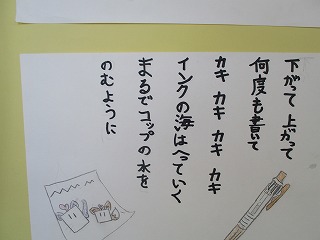 下がって 上がって
何度も書いて
カキ カキ カキ カキ
インクの海はへっていく
まるでコップの水を
のむように